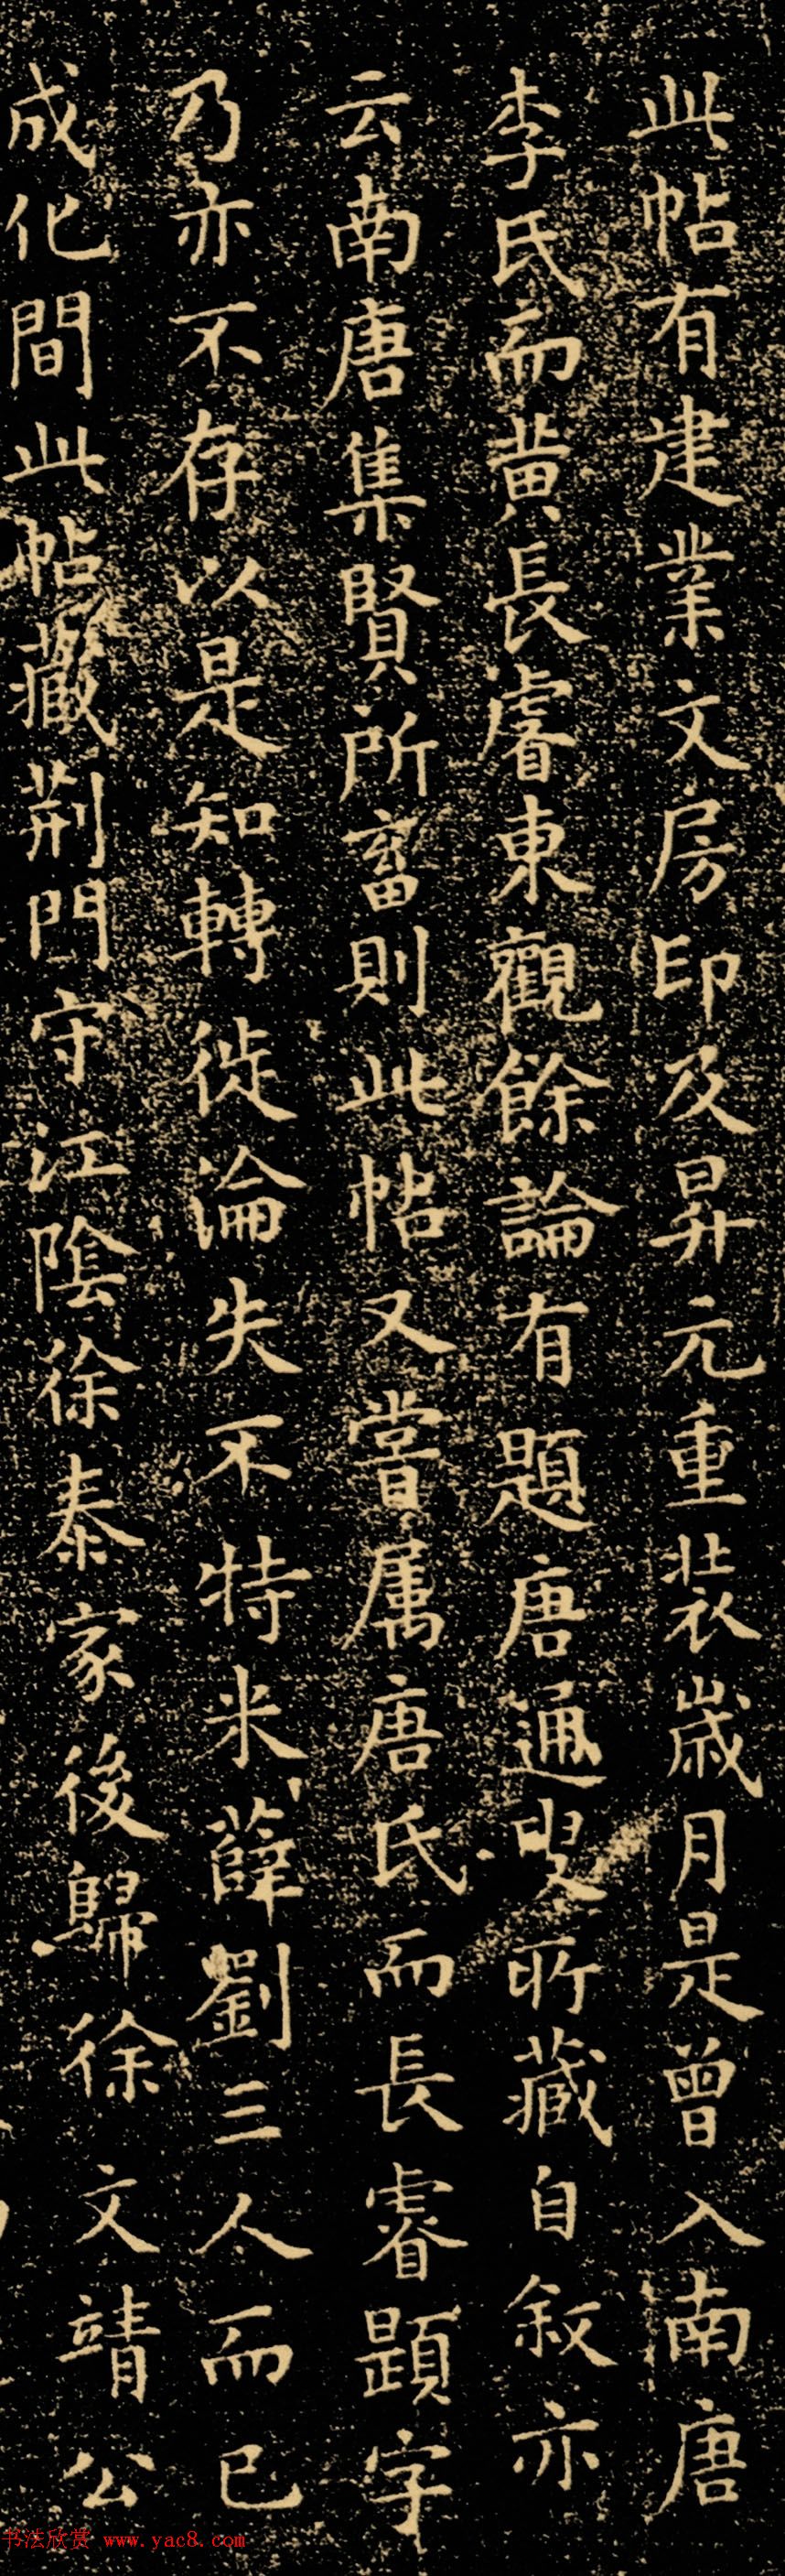 此帖有建業文房印及昇元重装歲月是曾入南唐
李氏而黄長睿東觀餘論有題唐通叟所藏自叙亦
云南唐集賢所畜則此帖又嘗属唐氏而長睿題字
乃亦不存以是知轉徙淪失不特米薛劉三人而已
成化間此帖藏荆門守江陰徐泰家後歸徐文靖公
书法欣赏 www.yac8.com